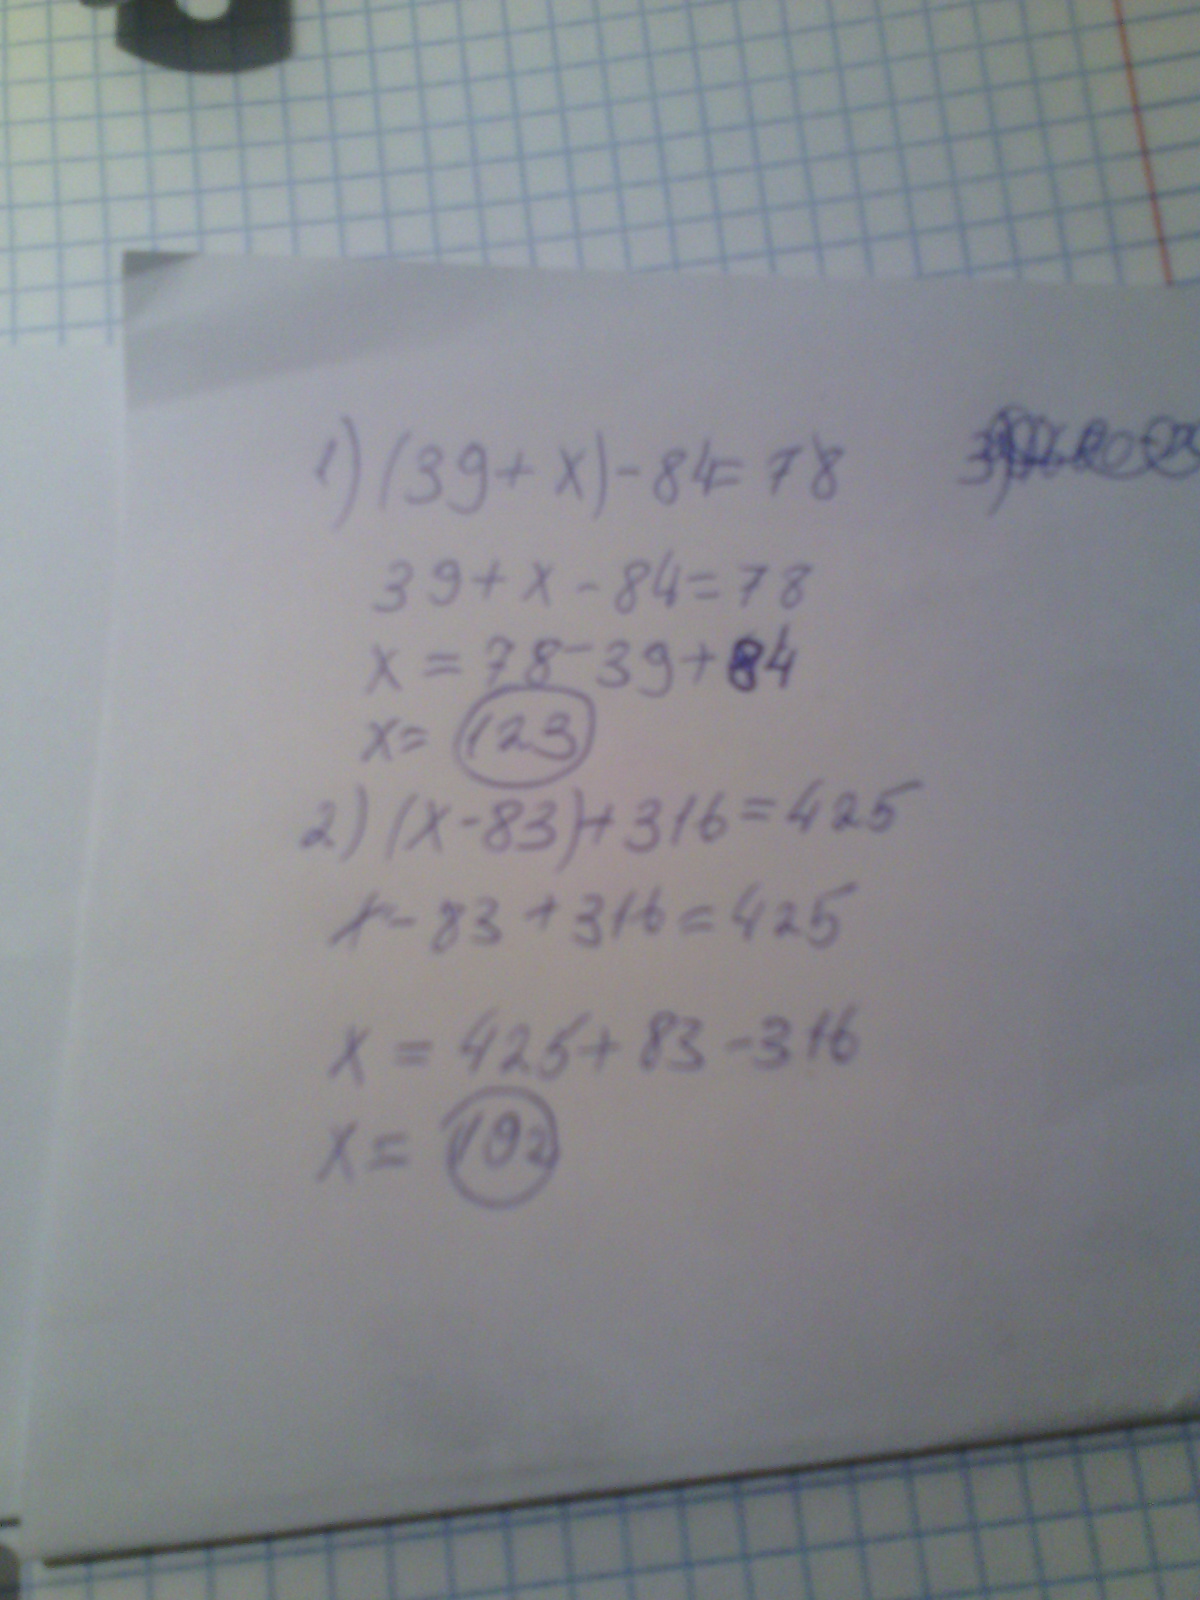 1) (39+x)-84=78
39+x-84=78
x=78-39+84
x=123
2) (x-83)+316=425
x-83+316=425
x=425+83-316
x=192
3)